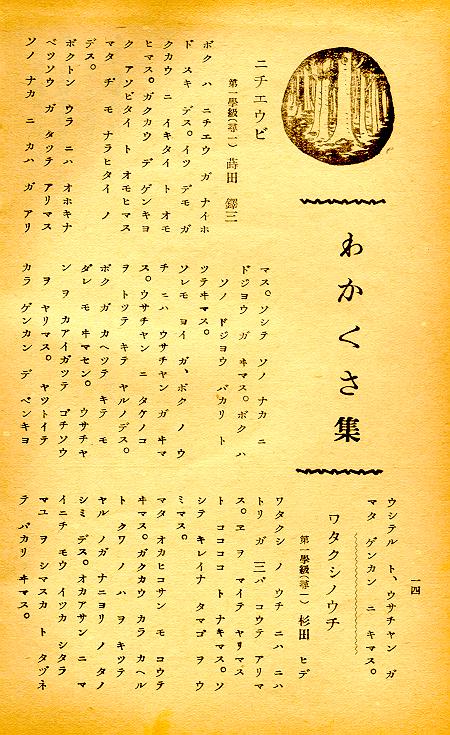 わかくさ集
ニチエウビ
第一學級(尋一) 蒔田 鐸三
ボク ハ ニチエウ ガ ナイホ
ド スキ デス。イツ デモ ガ
クカウ ニ イキタイ ト オモ
ヒマス。ガクカウ デ ゲンキヨ
ク アソビタイ ト オモヒマス
マタ ヂ モ ナラヒタイ ノ
デス。
ボクトン ウラ ニハ オホキナ
ベツソウ ガ タツテ アリマス
ソノ ナカ ニ カハ ガ アリ
マス。ソシテ ソノ ナカ ニ
ドジヨウ ガ ヰマス。ボク ハ
ソノ ドジヨウ バカリ ト
ツテヰマス。
ソレモ ヨイ ガ、ボク ノ ウ
チ ニハ ウサチヤン ガ ヰマ
ス。ウサチヤン ニ タケノコ
ヲ トツテ キテ ヤルノデス。
ボク ガ カヘツテ キテ モ
ダレ モ ヰマセン。 ウサチヤ
ン ヲ カアイガツテ ゴチソウ
ヲ ヤリマス。 ヤツトイテ
カラ ゲンカン デ ベンキヨ
ウシテル ト、ウサチヤン ガ
マタ ゲンカン ニ キマス。
ワタクシノウチ
第一學級(尋一) 杉田 ヒデ
ワタクシ ノ ウチ ニハ ニハ
トリ ガ 三バ コウテ アリマ
ス。ヱ ヲ マイテ ヤリマス
ト コココココ ト ナキマス。ソ
シテ キレイナ タマゴ ヲ ウ
ミマス。
マタ オカヒコサン モ コウテ
ヰマス。ガクカウ カラ カヘル
ト クワ ノ ハ ヲ キツテ
ヤル ノガ ナニヨリ ノ タノ
シミ デス。オカアサン ニ マ
イニチ モウ イツカ シタラ
マユ ヲ シマスカ ト タヅネ
テ バカリ ヰマス。
一四